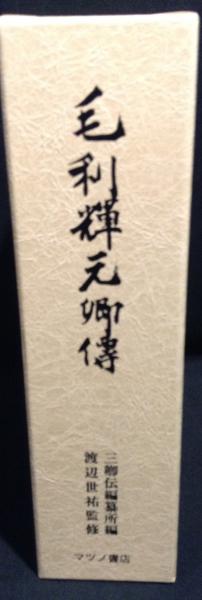 毛利輝元卿傳
三卿伝編纂所編
渡辺世祐監修
マツノ書店